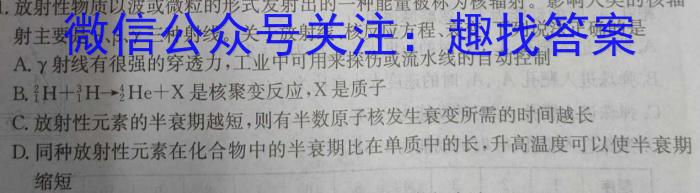 1. 放射性物质以波或微粒的形式发射出的一种能量被称为核辐射。影响人类的核辐
射主要
微信公众号关注：趣找答案
A. γ射线有很强的穿透力,工业中可用来探伤或流水线的自动控制
B. ²₁H+³₁H→⁴₂He+X 是核聚变反应,X 是质子
C. 放射性元素的半衰期越短,则有半数原子核发生衰变所需的时间越长
D. 同种放射性元素在化合物中的半衰期比在单质中的长,升高温度可以使半衰期
缩短